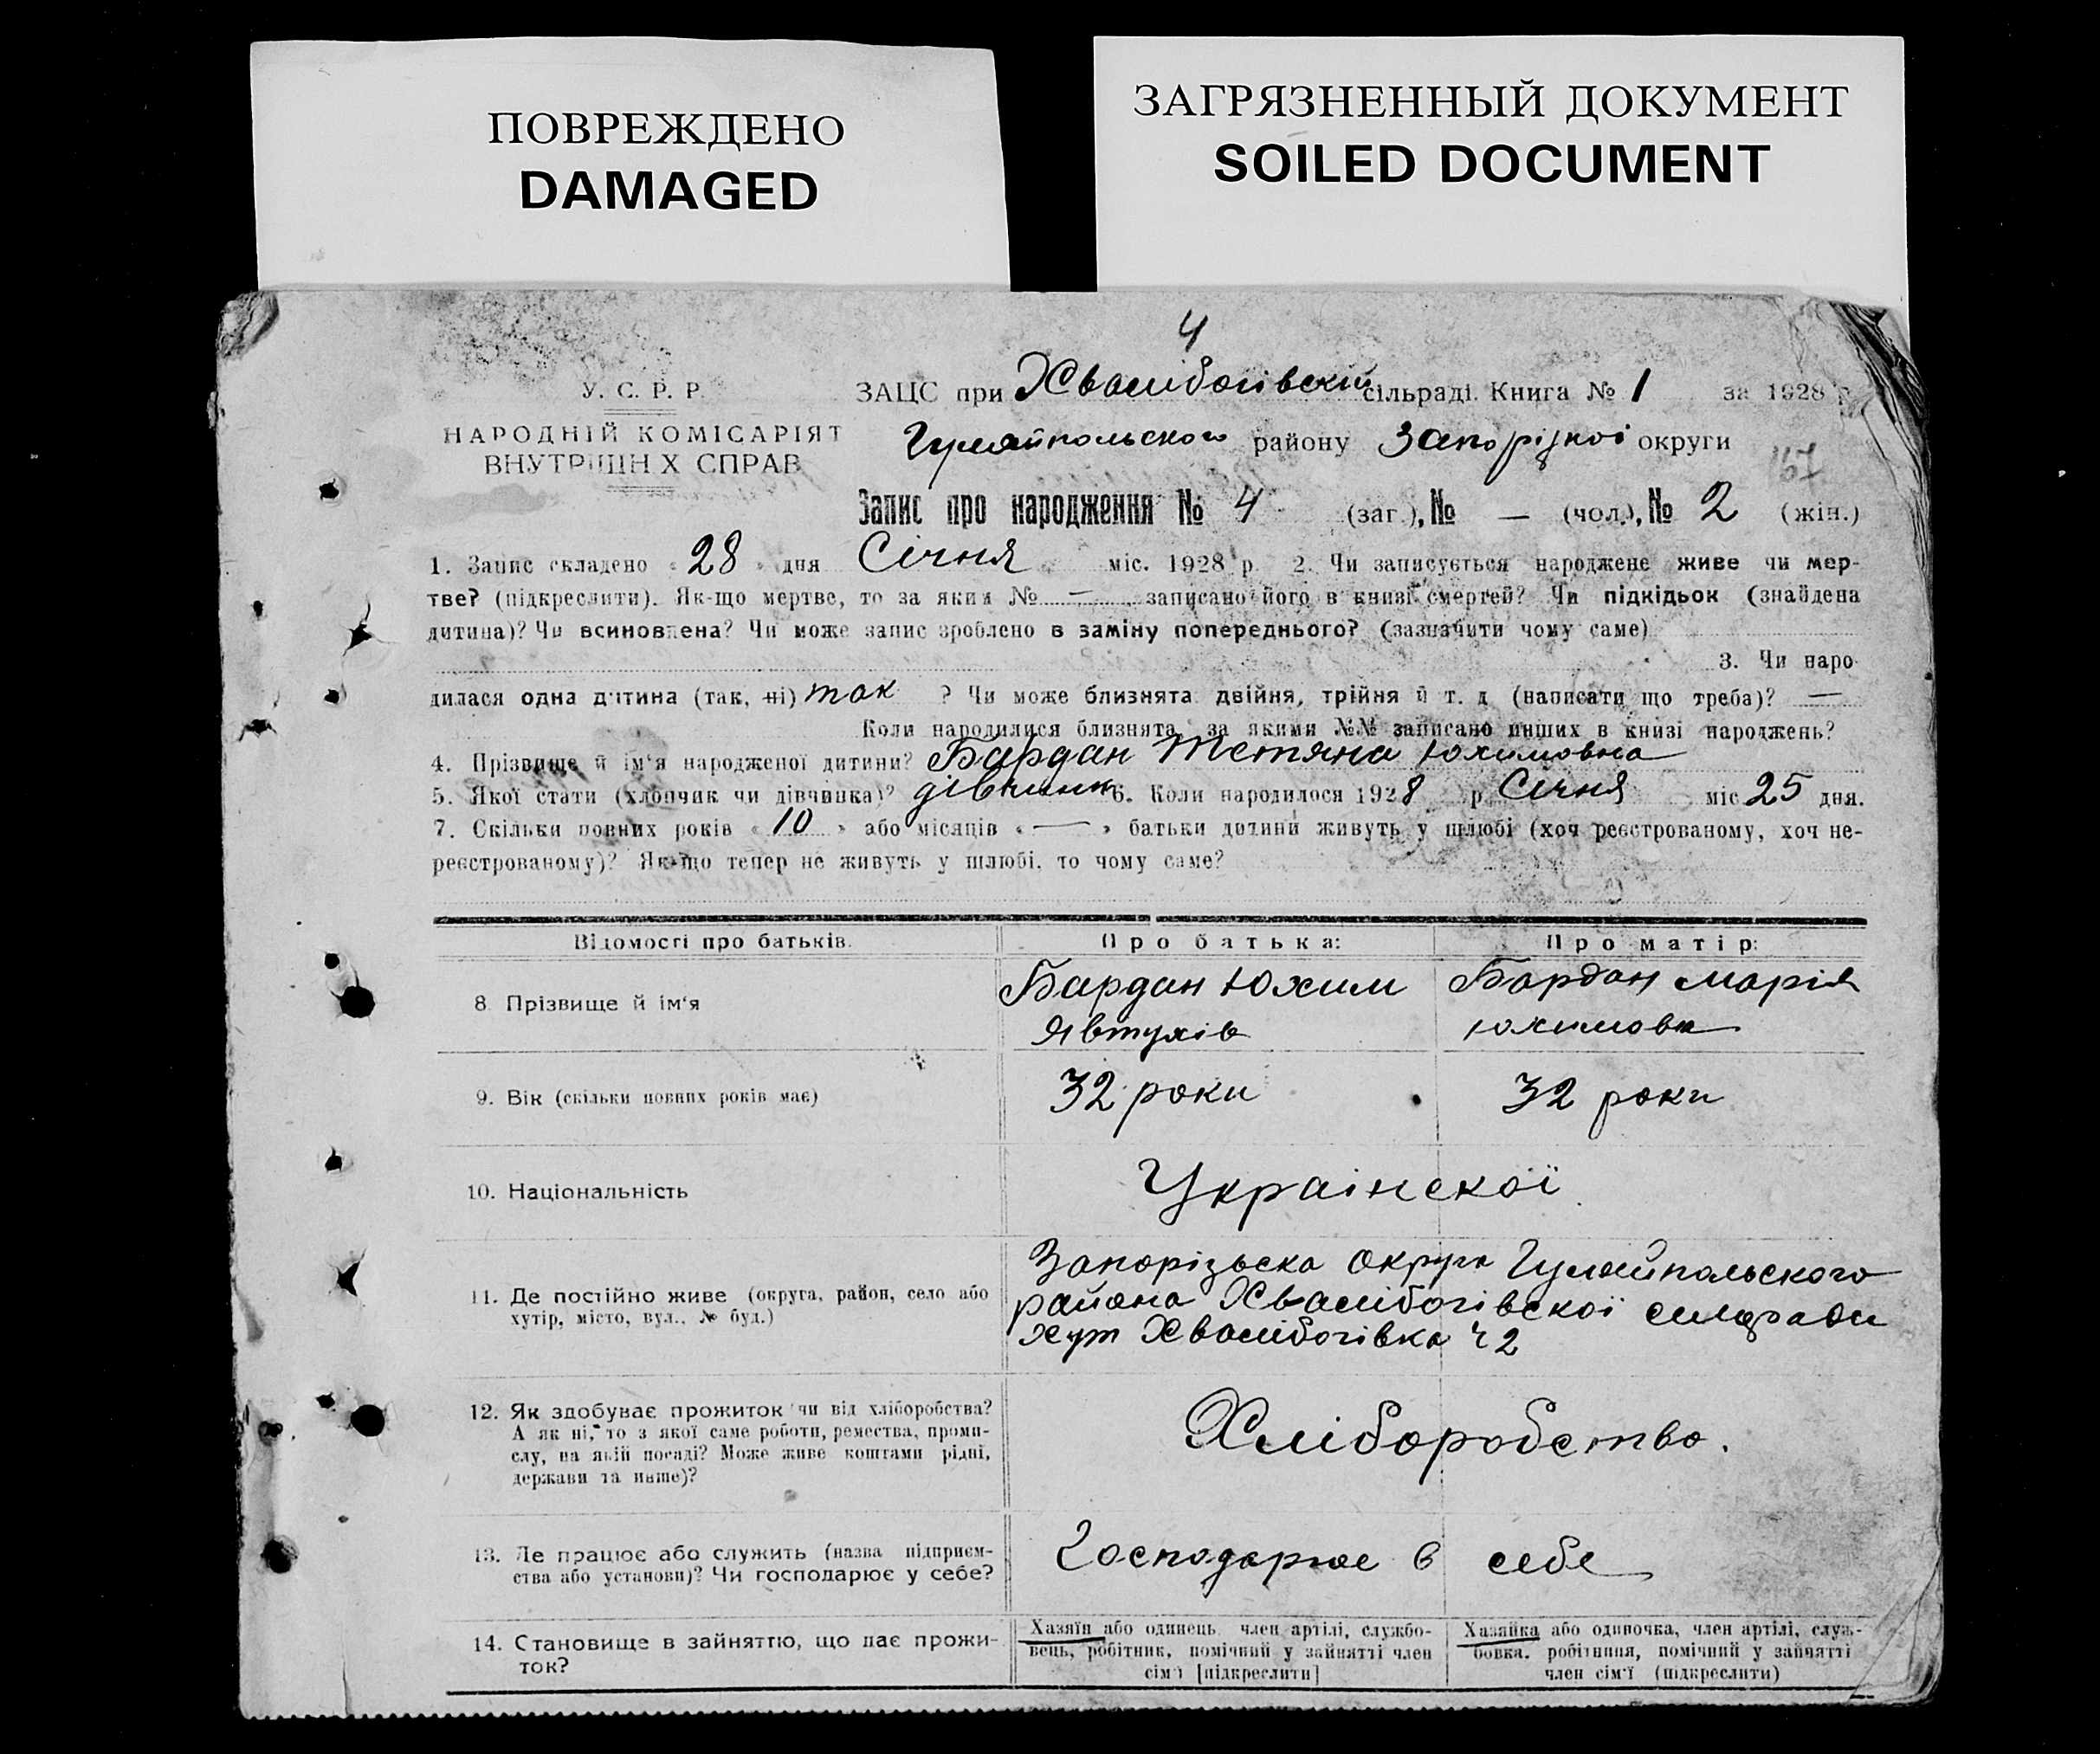 ПОВРЕЖДЕНО
DAMAGED
ЗАГРЯЗНЕННЫЙ ДОКУМЕНТ
SOILED DOCUMENT
4
У. С. Р. Р.
НАРОДНІЙ КОМІСАРІЯТ
ВНУТРІШНІХ СПРАВ
ЗАЦС при Хвалібогівскій сільраді. Книга № 1 за 1928 р.
Гуляйпольского району Запоріzкоі округи
167
Запис про народження № 4 (заг.), № — (чол.), № 2 (жін.)
1. Запис складено «28» дня Січня міс. 1928 р. 2. Чи записується народжене живе чи мер-
тве? (підкреслити). Як-що мертве, то за яким № — записано його в книзі смертей? Чи підкідьок (знайдена
дитина)? Чи всиновлена? Чи може запис зроблено в заміну попереднього? (зазначити чому саме)
3. Чи наро-
дилася одна дитина (так, ні) так ? Чи може близнята двійня, трійня й т. д. (написати що треба)? —
Коли народилися близнята, за якими №№ записано инших в книзі народжень?
4. Прізвище й ім'я народженої дитини? Бардан Тетяна Юхимовна
5. Якої стати (хлопчик чи дівчинка)? дівчинк 6. Коли народилося 1928 р. Січня міс. 25 дня.
7. Скільки повних років «10» або місяців «—» батьки дитини живуть у шлюбі (хоч реєстрованому, хоч не-
реєстрованому)? Як-що тепер не живуть у шлюбі, то чому саме?
Відомості про батьків.
Про батька:
Про матір:
8. Прізвище й ім'я
Бардан Юхим
Явтухів
Бардан Марія
Юхимовна
9. Вік (скільки повних років має)
32 роки
32 роки
10. Національність
Украінскої
11. Де постійно живе (округа, район, село або
хутір, місто, вул., № буд.)
Запорізьска округа Гуляйпольского
района Хвалібогівскої силради
хут Хвалібогівка ч 2
12. Як здобуває прожиток чи від хліборобства?
А як ні, то з якої саме роботи, ремества, проми-
слу, на якій посаді? Може живе коштами рідні,
держави та инше)?
Хліборобство.
13. Де працює або служить (назва підприєм-
ства або установи)? Чи господарює у себе?
Господарює в себе
14. Становище в зайняттю, що дає прожи-
ток?
Хазяїн або одинець, член артілі, службо-
вець, робітник, помічний у зайнятті член
сім'ї [підкреслити]
Хазяйка або одиночка, член артілі, служ-
бовка, робітниця, помічний у зайнятті
член сім'ї (підкреслити)